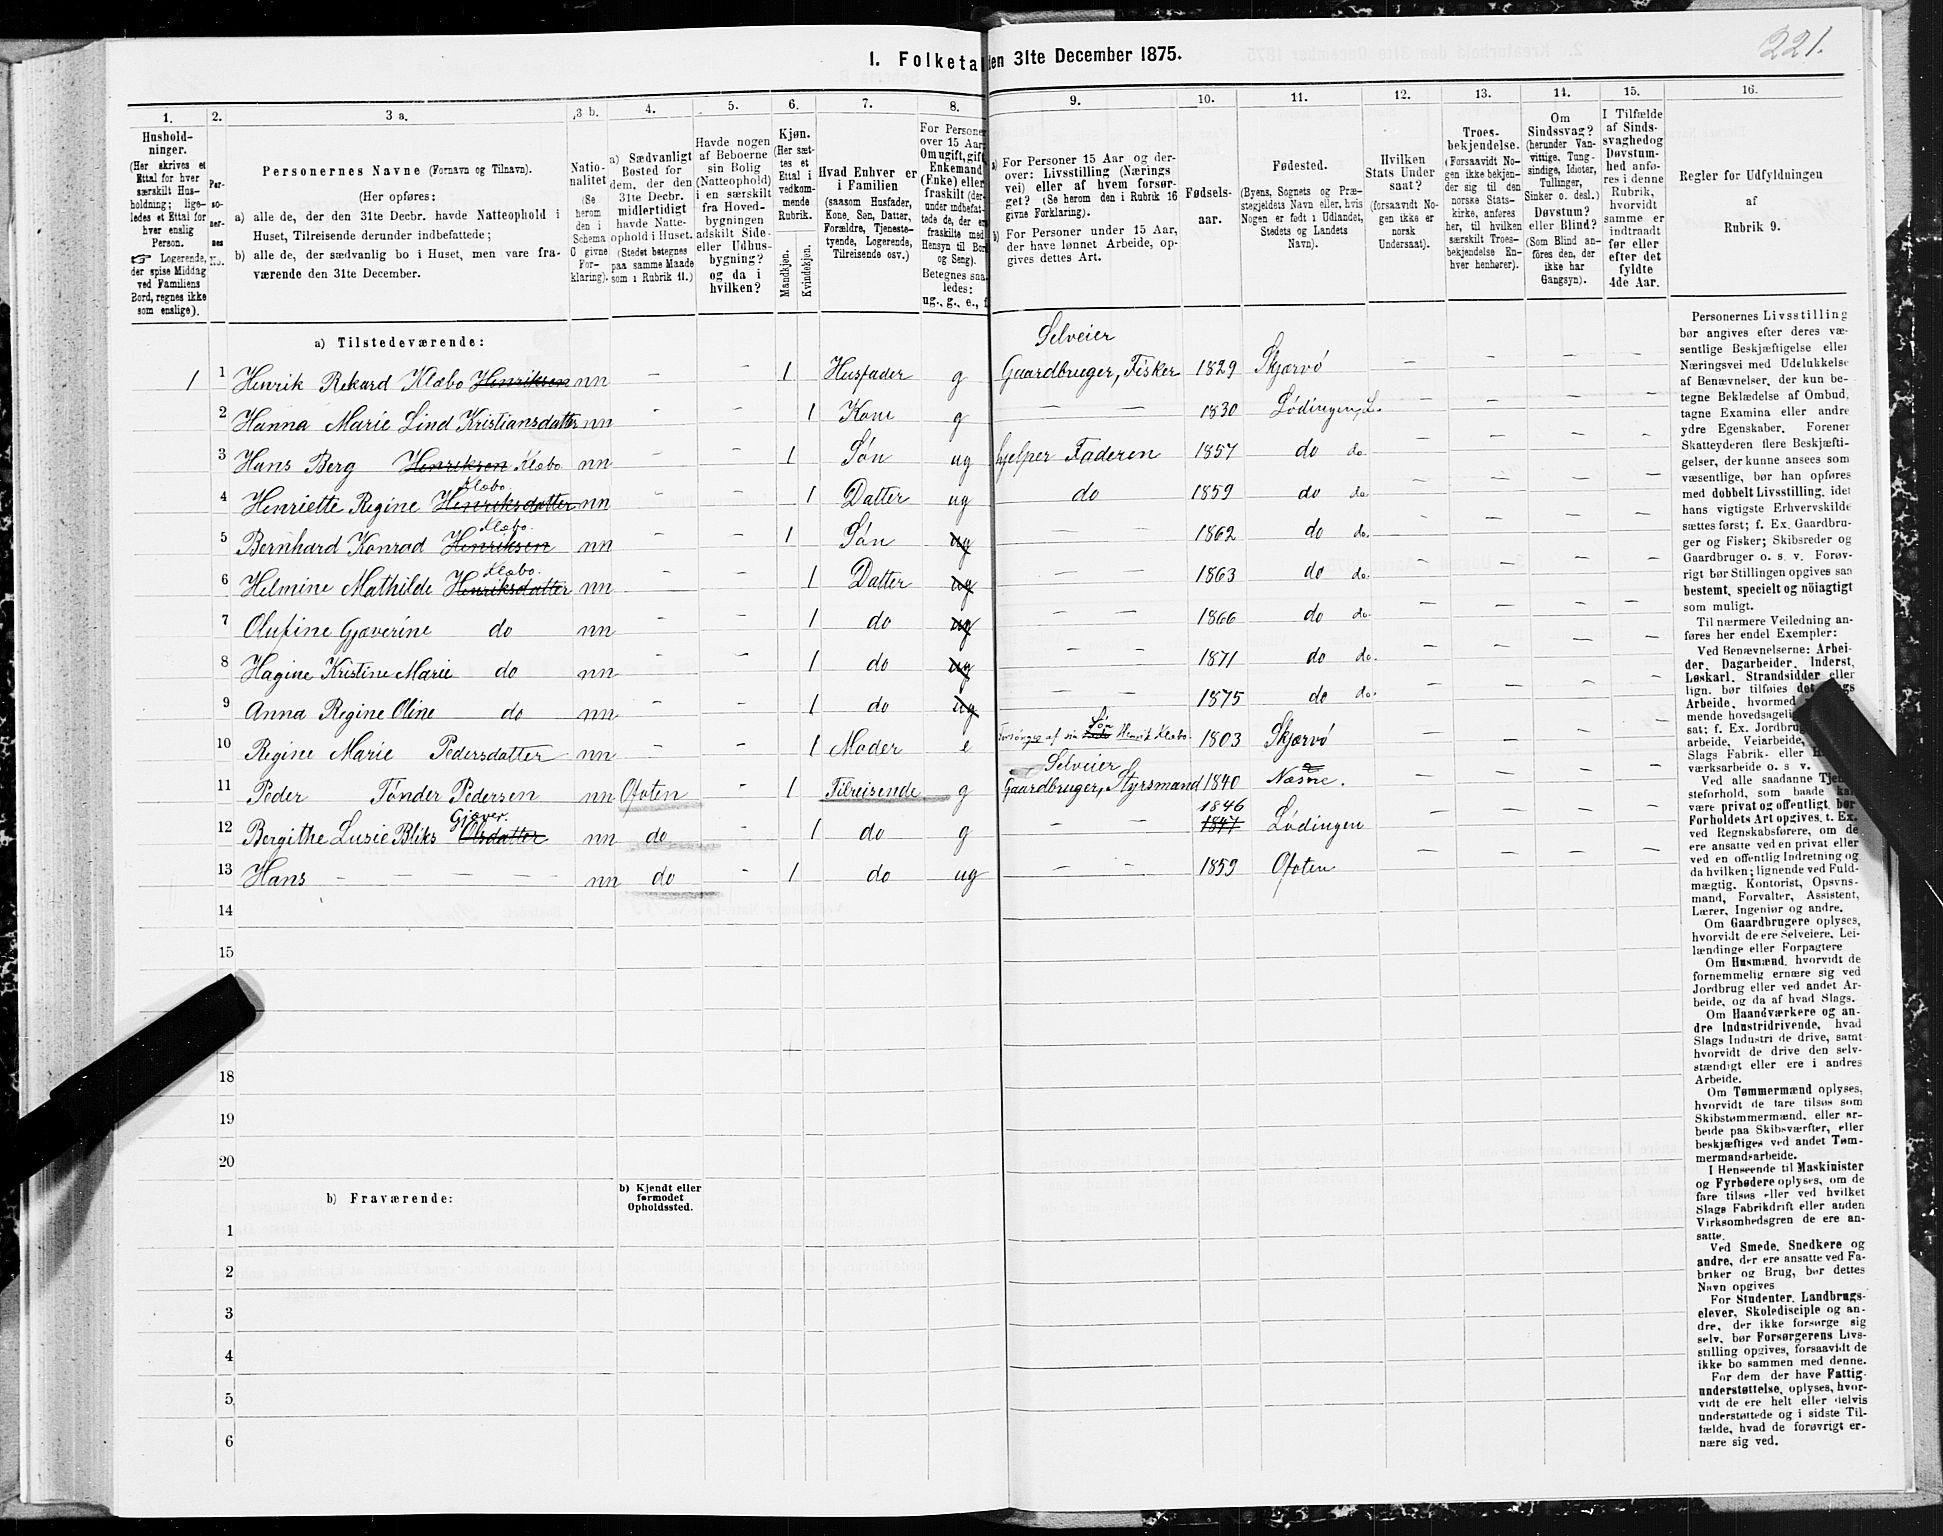 221.
1. Folketa den 31te December 1875.
1. 2. 3 a. 3 b. 4. 5. 6. 7. 8. 9. 10. 11. 12. 13. 14. 15. 16.
Hushold-
ninger.
(Her skrives et
Ettal for hver
særskilt Hus-
holdning; lige-
ledes et Ettal for
hver enslig
Person.
☞ Logerende,
der spise Middag
ved Familiens
Bord, regnes ikke
som enslige).
Per-
so-
ner-
nes
No.
Personernes Navne (Fornavn og Tilnavn).
(Her opføres:
a) alle de, der den 31te Decbr. havde Natteophold i
Huset, Tilreisende derunder indbefattede;
b) alle de, der sædvanlig bo i Huset, men vare fra-
værende den 31te December.
Natio-
nalitet
(Se
herom
den i
Schema
O givne
For-
klaring).
a) Sædvanligt
Bosted for
dem, der den
31te Decbr.
midlertidigt
havde Natte-
ophold i Huset.
(Stedet betegnes
paa samme Maade
som i Rubrik 11.)
Havde nogen
af Beboerne
sin Bolig
(Natteophold)
i en særskilt
fra Hoved-
bygningen
adskilt Side-
eller Udhus-
bygning?
og da i
hvilken?
Kjøn.
(Her sæt-
tes et
Ettal i
vedkom-
mende
Rubrik.
Mandkjøn.
Kvindekjøn.
Hvad Enhver er
i Familien
(saasom Husfader,
Kone, Søn, Datter,
Forældre, Tjeneste-
tyende, Logerende,
Tilreisende osv.)
For Personer
over 15 Aar:
Om ugift, gift,
Enkemand
(Enke) eller
fraskilt (der-
under indbefat-
tede de, der ere
fraskilte med
Hensyn til Bord
og Seng).
Betegnes saa-
ledes:
ug., g., e., f.
a) For Personer 15 Aar og der-
over: Livsstilling (Nærings
vei) eller af hvem forsør-
get? (Se herom den i Rubrik 16
givne Forklaring).
b) For Personer under 15 Aar,
der have lønnet Arbeide, op-
gives dettes Art.
Fødsels-
aar.
Fødested.
(Byens, Sognets og Præ-
stegjeldets Navn eller, hvis
Nogen er født i Udlandet,
Stedets og Landets
Navn).
Hvilken
Stats Under
saat?
(forsaavidt No-
gen ikke er
norsk
Undersaat).
Troes-
bekjendelse.
(Forsaavidt No-
gen ikke bekjen-
der sig til den
norske Stats-
kirke, anføres
her, til hvilken
særskilt Troes-
bekjendelse En-
hver henhører).
Om
Sindssvag?
(herunder Van-
vittige, Tung-
sindige, Idioter,
Tullinger,
Sinker o. desl.)
Døvstum?
eller Blind?
(Som Blind an-
føres den, der
ikke har
Gangsyn).
I Tilfælde
af Sinds-
svaghed og
Døvstum-
hed anfø-
res i denne
Rubrik,
hvorvidt
samme er
indtraadt
før eller
efter det
fyldte
4de Aar.
Regler for Udfyldningen
af
Rubrik 9.
a) Tilstedeværende:
Selveier
1 1 Henrik Rekard Klæbo Henriksen nn - - 1 Husfader g Gaardbruger, Fisker 1829 Skjærvö
2 Hanna Marie Lind Kristiansdatter nn - - 1 Kone g — — 1830 Lödingen, L.
3 Hans Berg Henriksen Klæbo nn - - 1 Sön ug hjelper Faderen 1857 do do
Klæbo.
4 Henriette Regine Henriksdatter nn - - 1 Datter ug do 1859 do do.
Klæbo.
5 Bernhard Konrad Henriksen nn - - 1 Sön ug — — 1862 do do.
Klæbo.
6 Helmine Mathilde Henriksdatter nn - - 1 Datter ug — — 1863 do do.
7 Olufine Gjæverine do nn - - 1 do ug — — 1866 do do.
8 Hagine Kristine Marie do nn - - 1 do ug — — 1871 do do.
9 Anna Regine Oline do nn - - 1 do ug — — 1875 do do.
Sön
10 Regine Marie Pedersdatter nn - - 1 Moder e Forsörges af sin Henrik Klæbo. 1803 Skjærvö
Selveier
11 Peder Tönder Pedersen nn Ofoten - 1 Tilreisende g Gaardbruger, Styrsmand 1840 Næsne.
Gjæver. 1846
12 Bergithe Lusie Bliks Olsdatter nn do - 1 do g — — 1847 Lödingen
13 Hans — — — — nn do - 1 do ug — — 1859 Ofoten
14
15
18
19
20
b) Fraværende:
b) Kjendt eller
formodet
Opholdssted.
1
2
3
4
5
6
Personernes Livsstilling
bør angives efter deres væ-
sentlige Beskjæftigelse eller
Næringsvei med Udelukkelse
af Benævnelser, der kun be-
tegne Beklædelse af Ombud,
tagne Examina eller andre
ydre Egenskaber. Forener
Skatteyderen flere Beskjæfti-
gelser, der kunne ansees som
væsentlige, bør han opføres
med dobbelt Livsstilling, idet
hans vigtigste Erhvervskilde
sættes først; f. Ex. Gaardbru-
ger og Fisker; Skibsreder og
Gaardbruger o. s. v. Forøv-
rigt bør Stillingen opgives saa
bestemt, specielt og nöiagtigt
som muligt.
Til nærmere Veiledning an-
føres her endel Exempler:
Ved Benævnelserne: Arbei-
der, Dagarbeider, Inderst,
Løskarl, Strandsidder eller
lign. bør tilføies det
Arbeide, hvormed
mende hovedsageli
sat; f. Ex. Jordbrug
arbeide, Veiarbeide,
Slags Fabrik- eller
værksarbeide o. s. v.
Ved alle saadanne
steforhold, som baade
være privat og offentligt, bør
Forholdets Art opgives, t. Ex.
ved Regnskabsførere, om de
ere ansatte ved en privat eller
ved en offentlig Indretning og
da hvilken; lignende ved Fuld-
mægtig, Kontorist, Opsyns-
mand, Forvalter, Assistent,
Lærer, Ingeniør og andre.
Om Gaardbrugere oplyses,
hvorvidt de ere Selveiere, Lei-
lændinge eller Forpagtere
Om Husmænd, hvorvidt de
fornemmelig ernære sig ved
Jordbrug eller ved andet Ar-
beide, og da af hvad Slags.
Om Haandværkere og an-
dre Industridrivende, hvad
Slags Industri de drive, samt
hvorvidt de drive den selv-
stændigt eller ere i andres
Arbeide.
Om Tømmermænd oplyses,
hvorvidt de fare tilsøs som
Skibstømmermænd, eller ar-
beide paa Skibsværfter, eller
beskjæftiges ved andet Tøm-
mermandsarbeide.
I Henseende til Maskinister
og Fyrbødere oplyses, om de
fare tilsøs eller ved hvilket
Slags Fabrikdrift eller anden
Virksomhedsgren de ere an-
satte.
Ved Smede, Snedkere og
andre, der ere ansatte ved Fa-
briker og Brug, bør dettes
Navn opgives
For Studenter, Landbrugs-
elever, Skoledisciple og an-
dre, der ikke forsørge sig
selv, bør Forsørgerens Livs-
stilling opgives, forsaavidt de
ikke bo sammen med denne.
For dem der have Fattig-
understøttelse, oplyses, hvor-
vidt de ere helt eller delvis
understøttede og i sidste Til-
fælde, hvad de forøvrigt er-
nære sig ved.